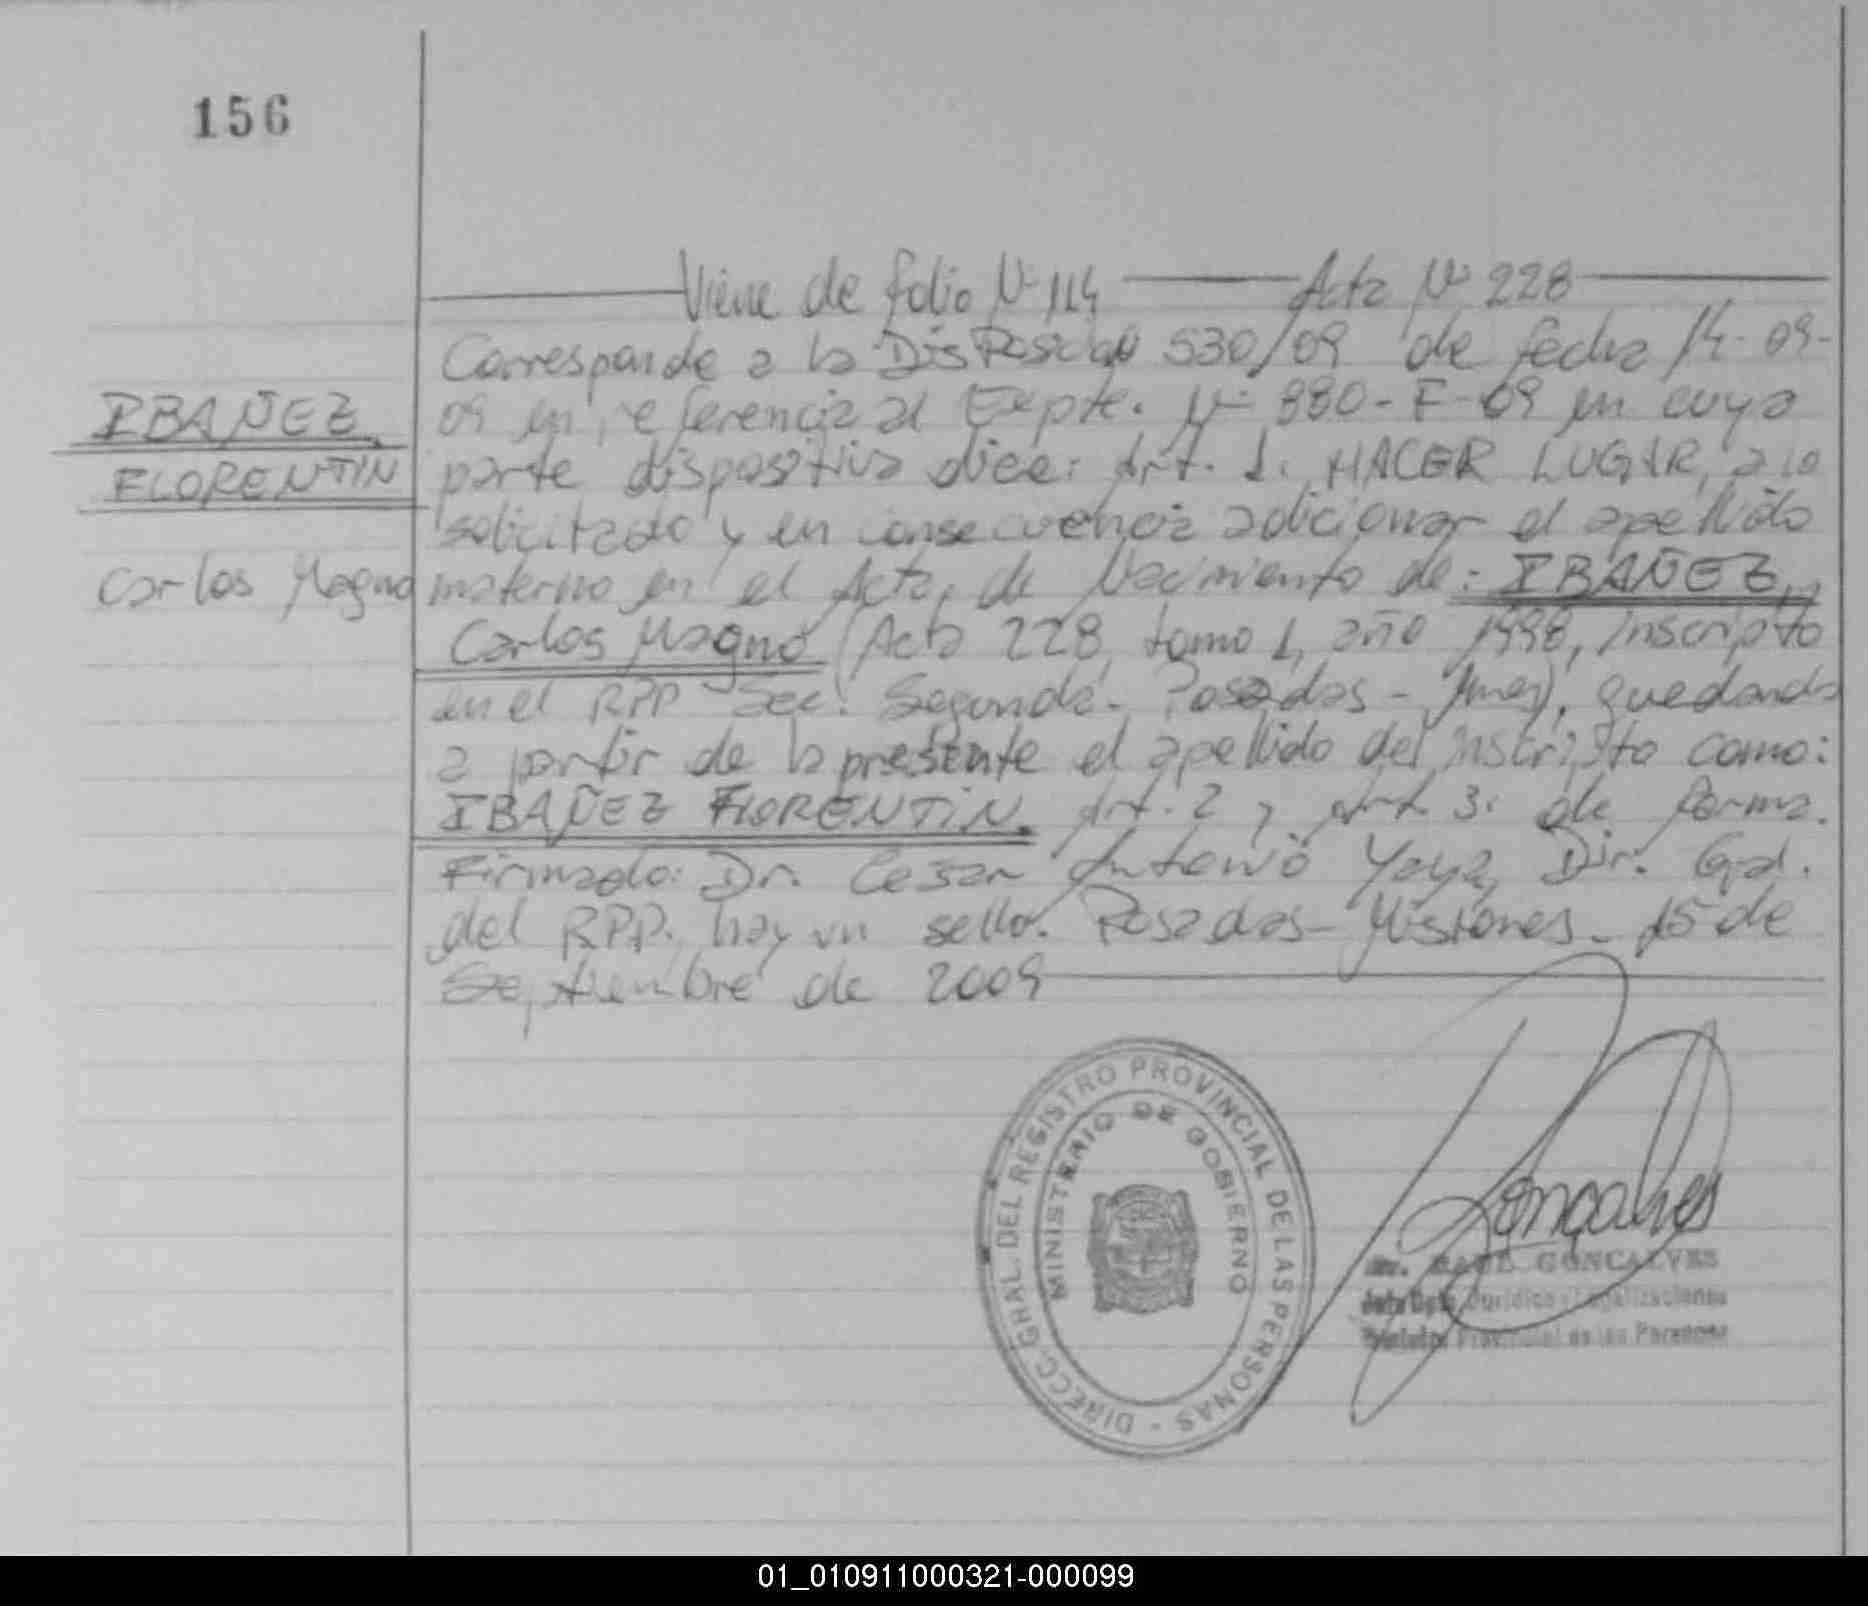 156
Viene de folio Nº 114 Acta Nº 228
Corresponde a la Disposición 530/09 de fecha 14-09-
09 en referencia al Expte. Nº 880-F-09 en cuya
IBAÑEZ
FLORENTIN
Carlos Magno
parte dispositiva dice: Art. 1: HACER LUGAR, a lo
solicitado y en consecuencia adicionar el apellido
materno en el Acta de Nacimiento de: IBAÑEZ,
Carlos Magno (Acta 228, tomo 1, año 1998, inscripto
en el RPP Sec. Segunda- Posadas - Mnes), quedando
a partir de la presente el apellido del inscripto como:
IBAÑEZ FLORENTIN. Art. 2 y Art. 3: de forma.
Firmado: Dr. Cesar Antonio Yaya, Dir. Gral.
del RPP. hay un sello. Posadas- Misiones- 15 de
Septiembre de 2009
DIRECC. GRAL. DEL REGISTRO PROVINCIAL DE LAS PERSONAS -
MINISTERIO DE GOBIERNO
Goncalves
RAUL GONCALVES
Jefe Dpto. Jurídico Legalizaciones
Registro Provincial de las Personas
01_010911000321-000099